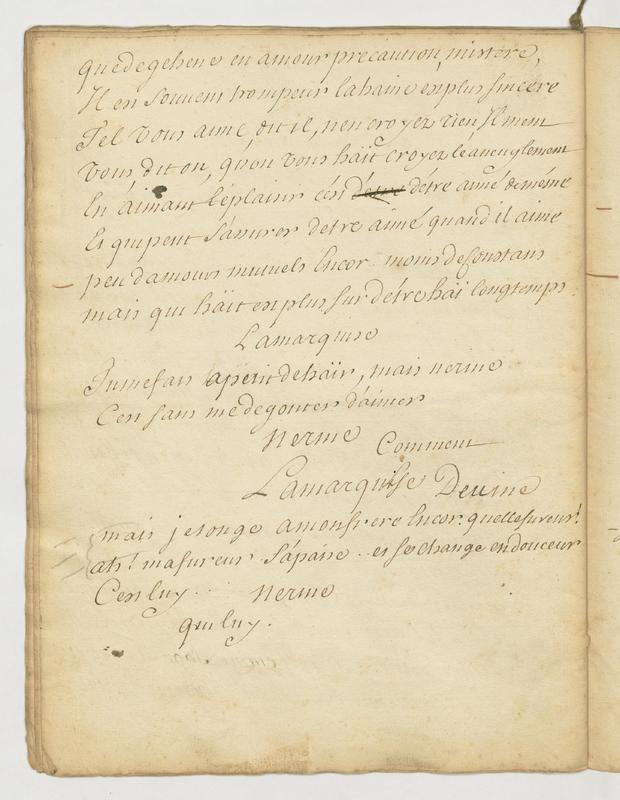 que de gehene en amour precaution, mistere,
Il en souvent trompeur la haine en plus sincere
Tel vous aime, dit il, n'en croyez rien Il ment
vous dit on, qu'on vous häit croyez lé aveuglement
En áimant le plaisir cén d'étre d'étre aimé de méme
Et qui peut s'assurer detre aimé quand il aime
peu d'amours mutuels Encor moins de constans
mais qui häit en plus sur d'étre häi longtemps.
Lamarquise
Tu me fais apetit de häir, mais nerine
C'en sans me degouter d'aimer
Nerine Comment
Lamarquise Devine
mais je songe a mon frere Encor. quelle fureur!
ah! ma fureur s'apaise .. et se change en douceur
C'en luy .. Nerine
qui luy.